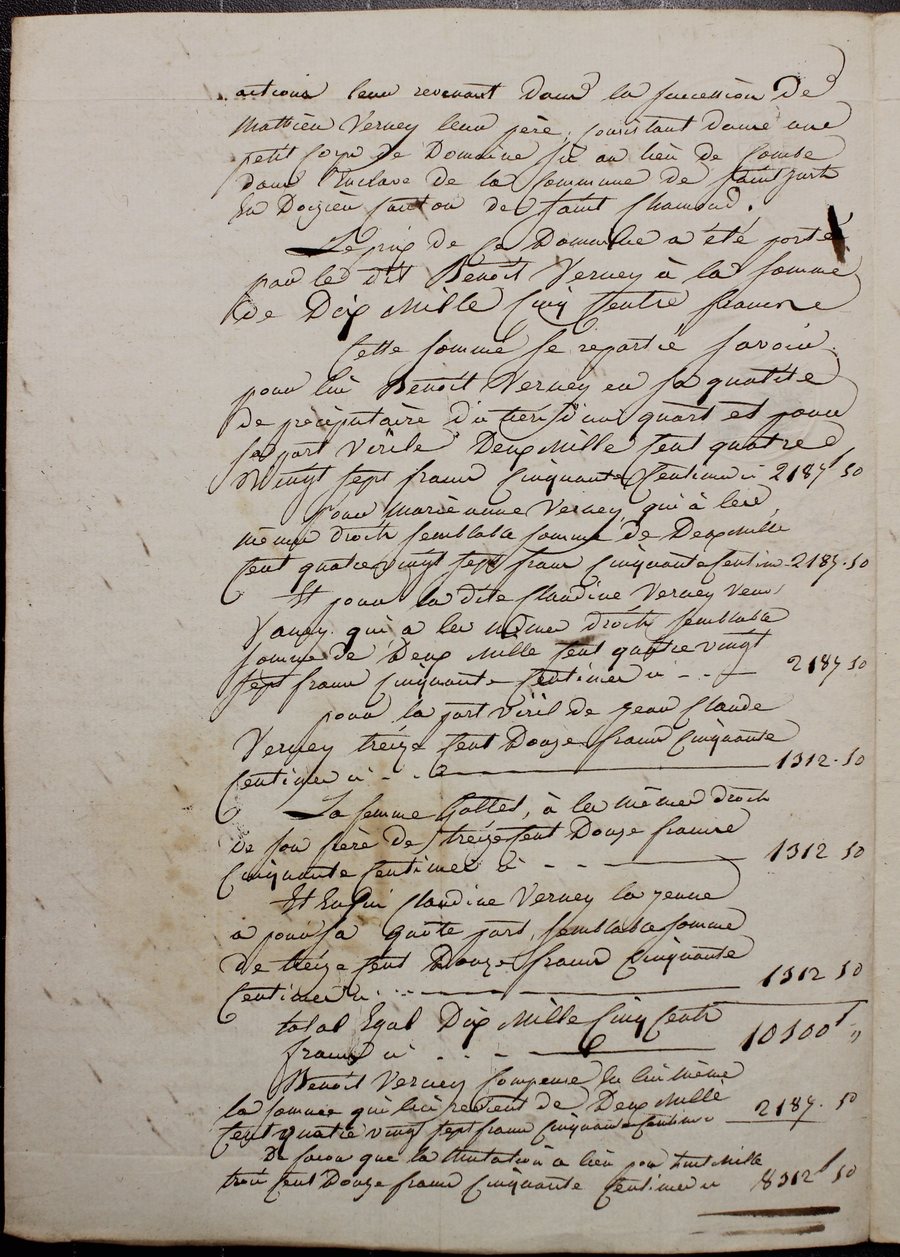 actions leur revenant dans la succession de
Mathieu Verney leur père, consistant dans une
petit corp de Domaine sis au lieu de Combe
dans l'enclave de la Commune de Saint just
En Doizieu Canton de Saint Chamond.
Le prix de ce Domaine a été porté
par le dit Benoit Verney à la somme
de Dix Mille Cinq Cents francs
Cette somme se repartie savoir
pour lui Benoit Verney en sa qualité
de préciputaire d'un quart et pour
sa part virile Deux Mille Cent quatre
Vingt sept francs Cinquante Centimes ci 2187f 50
Pour Marie anne Verney, qui à les
même droits semblable somme de Deux Mille
Cent quatre vingt sept francs Cinquante Centimes 2187. 50
Et pour la dite Claudine Verney Veuve
Vaney qui a les même droits semblable
somme de Deux Mille Cent quatre vingt
sept francs Cinquante Centimes ci - - - 2187 50
pour la part viril de jean Claude
Verney treize Cent Douze francs Cinquante
Centimes ci - - 1312. 50
La femme Gattet, à les même droits
de son frère de treize Cent Douze francs
Cinquante Centimes ci - - - 1312 50
Et Enfin Claudine Verney la jeune
a pour sa quote part, semblable somme
de treize Cent Douze francs Cinquante
Centimes ci - - - 1312 50
total Egal Dix Mille Cinq Cents
francs ci - - - 10500f "
Benoit Verney Compense En lui même
la somme qui lui revient de Deux Mille
Cent quatre vingt sept francs Cinquante Centimes 2187. 50
De facon que la Mutation a lieu pour huit Mille
trois Cent Douze francs Cinquante Centimes ci 8312f 50